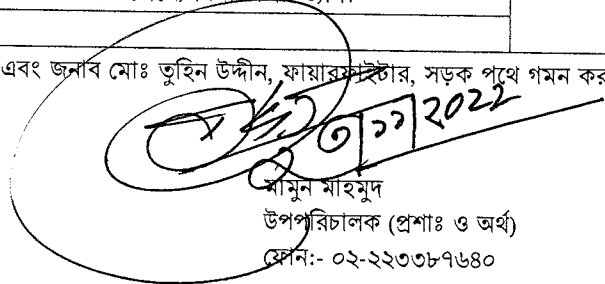 এবং জনাব মোঃ তুহিন উদ্দীন, ফায়ারফাইটার, সড়ক পথে গমন কর
৩/১১/২০২২
মামুন মাহমুদ
উপপরিচালক (প্রশাঃ ও অর্থ)
ফোন:- ০২-২২৩৩৮৭৬৪০